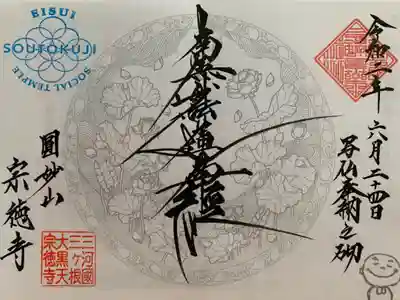 EISUI
SOUTOKUJI
SOCIAL TEMPLE
令和二年
六月二十四日
写仏奉納之砌
南無妙法蓮華経
圓妙山
宗徳寺
三河國
三ヶ根
大黒天
宗徳寺